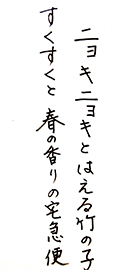 ニョキニョキとはえる竹の子
すくすくと春の香りの宅急便